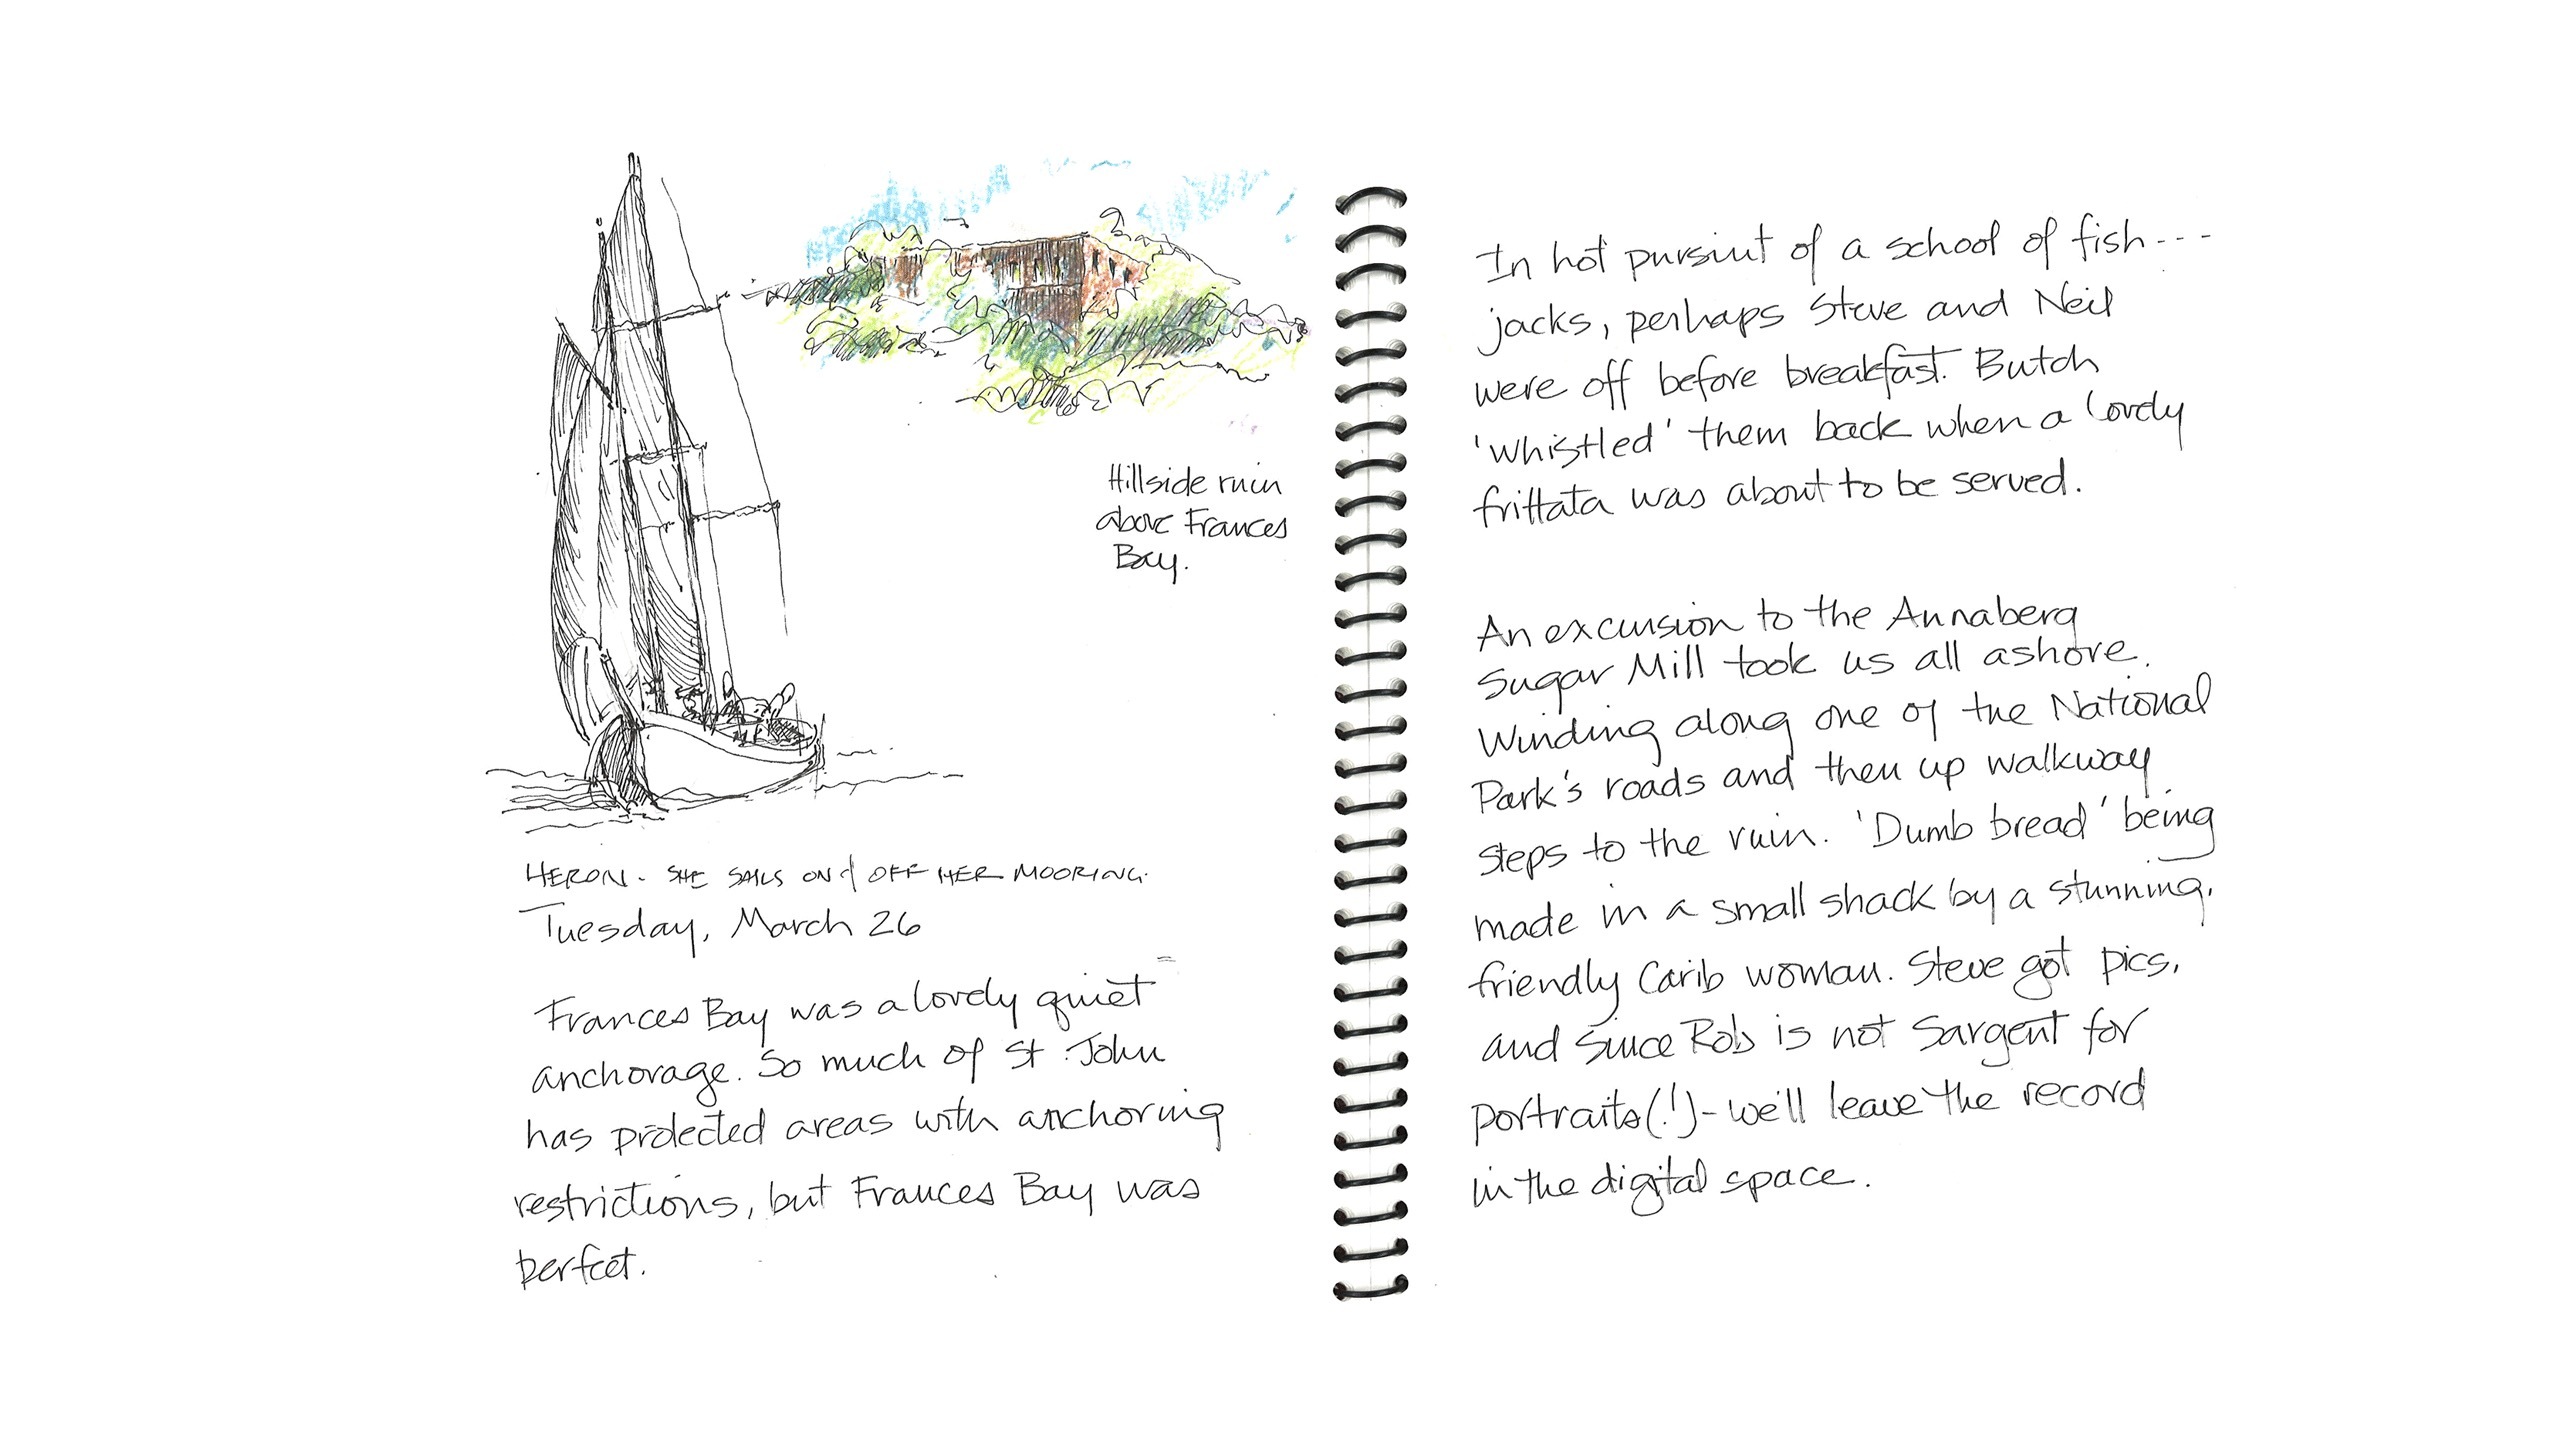 Hillside ruin
above Frances
Bay.
HERON. SHE SAILS ON & OFF HER MOORING.
Tuesday, March 26
Frances Bay was a lovely quiet
anchorage. So much of St. John
has protected areas with anchoring
restrictions, but Frances Bay was
perfect.
In hot pursuit of a school of fish---
jacks, perhaps Steve and Neil
were off before breakfast. Butch
'whistled' them back when a lovely
frittata was about to be served.
An excursion to the Annaberg
Sugar Mill took us all ashore.
Winding along one of the National
Park's roads and then up walkway
steps to the ruin. 'Dumb bread' being
made in a small shack by a stunning,
friendly Carib woman. Steve got pics,
and since Rob is not Sargent for
portraits(!)-we'll leave the record
in the digital space.